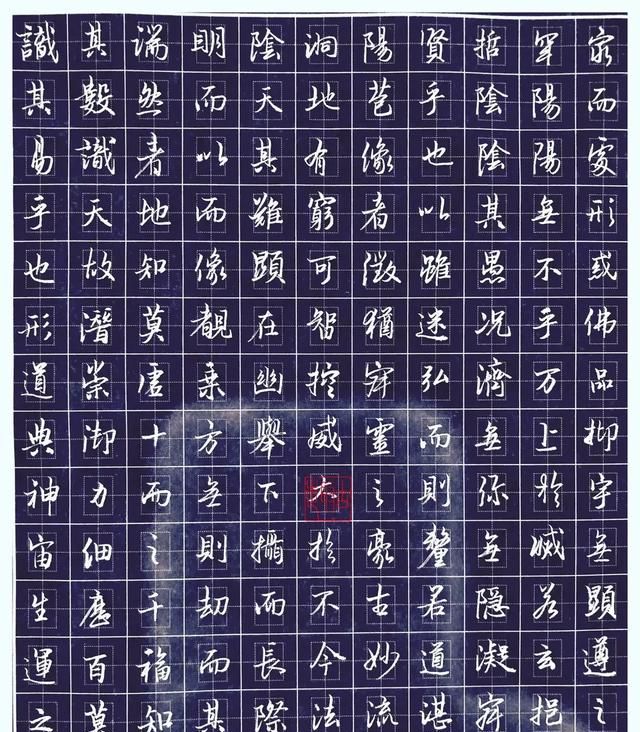 識其端明陰洞陽賢哲罕窮
其數然而天地苞乎陰陽而
易識者以其有像也陰陽處
乎天地而難窮者以其無形
也故知像顯可徵雖愚不惑
形潛莫覩在智猶迷況乎佛
道崇虛乘幽控寂弘濟萬品
典御十方舉威靈而無上抑
神力而無下大之則彌於宇
宙細之則攝於豪釐無滅無
生歷千劫而不古若隱若顯
運百福而長今妙道凝玄遵
之莫知其際法流湛寂挹之